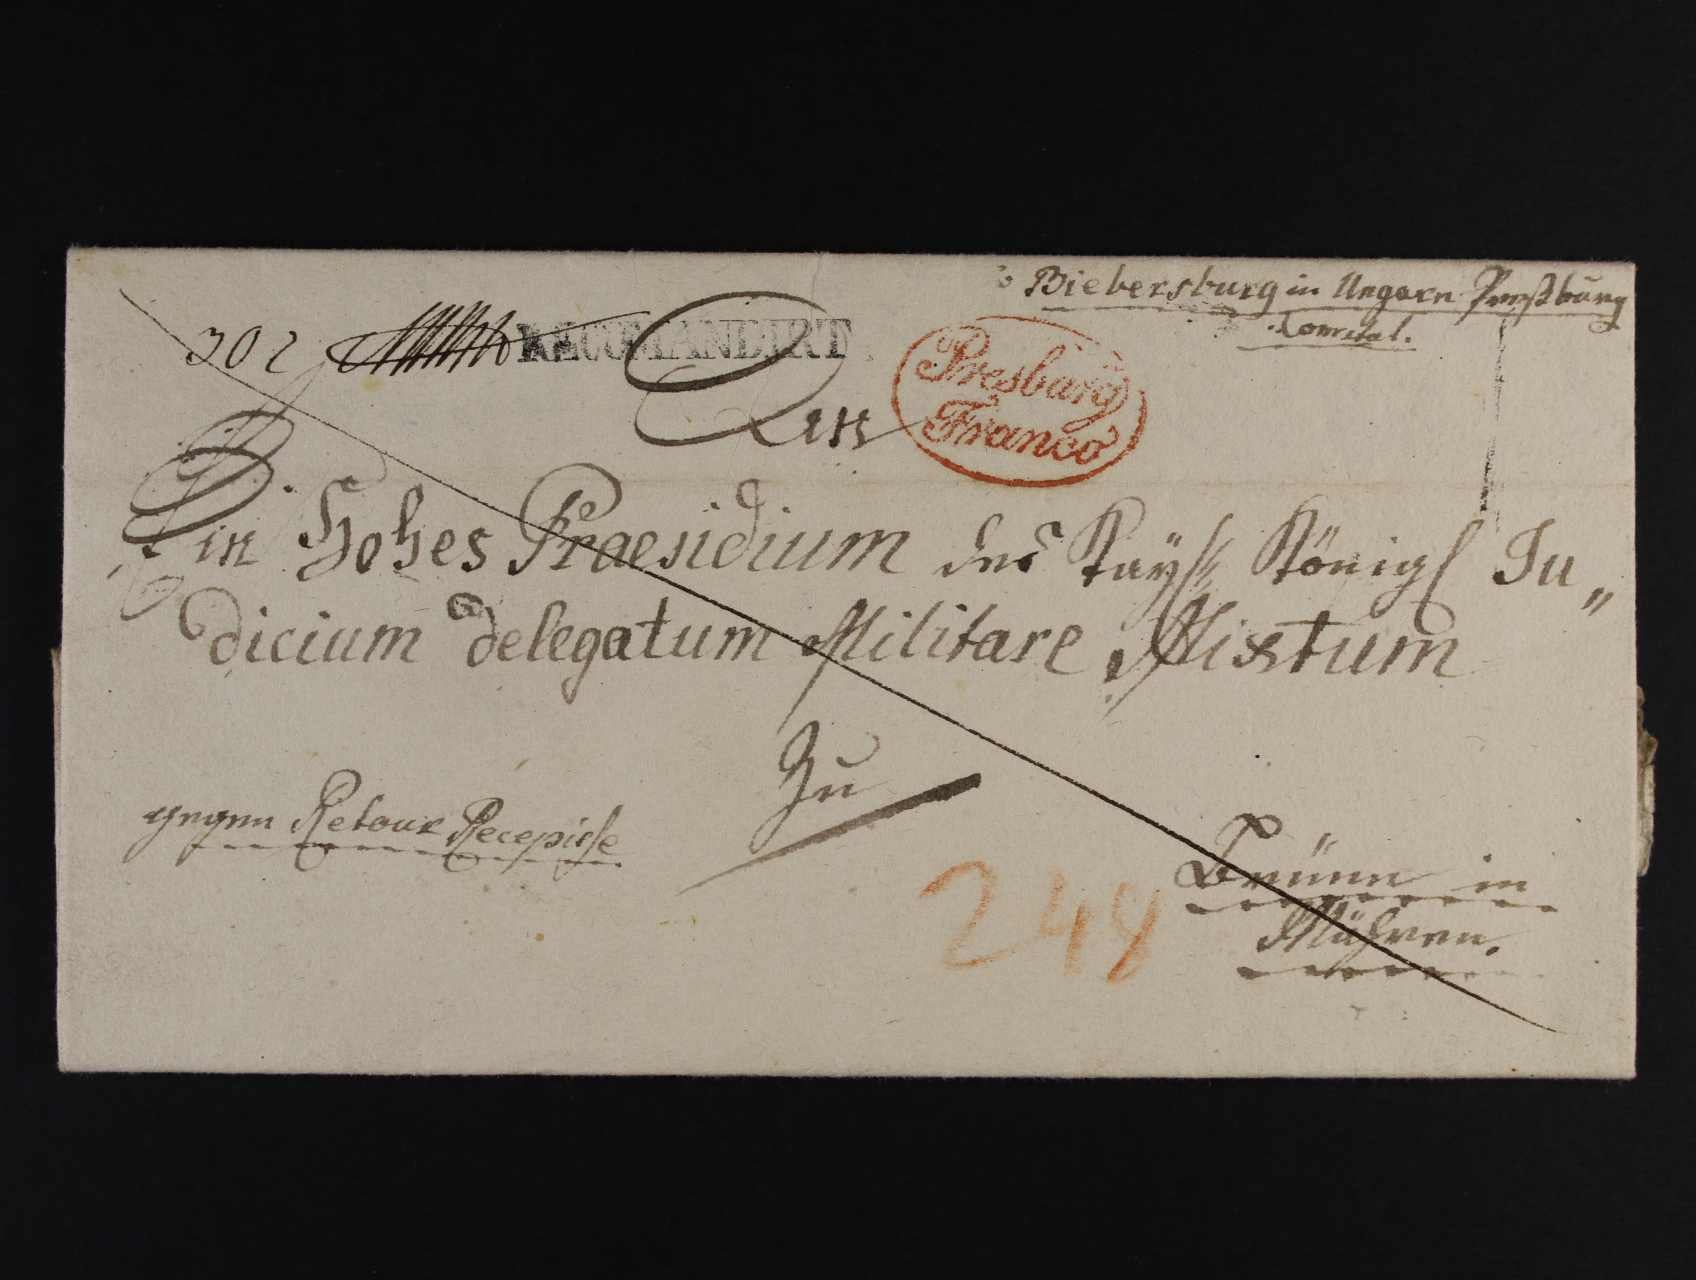 Biebersburg in Ungarn Preßburg
Comitat.
302
RECOMANDIRT
An
Presburg
Franco
Ein Hohes Praesidium des Kaysl. Königl Ju„
dicium delegatum Militare Mixtum
Zu
gegen Retour Recepisse
248
Brünn in
Mähren.